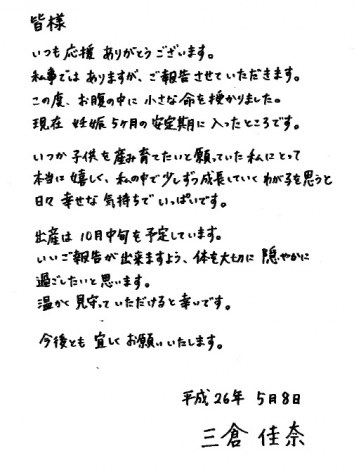 皆様
いつも応援 ありがとうございます。
私事では ありますが、ご報告させていただきます。
この度、お腹の中に 小さな命を授かりました。
現在 妊娠5ヶ月の安定期に入ったところです。
いつか 子供を産み育てたいと願っていた私にとって
本当に嬉しく、私の中で少しずつ成長していくわが子を思うと
日々幸せな気持ちでいっぱいです。
出産は10月中旬を予定しています。
いいご報告が出来ますよう、体を大切に 穏やかに
過ごしたいと思います。
温かく見守っていただけると幸いです。
今後とも 宜しくお願いいたします。
平成26年 5月8日
三倉 佳奈